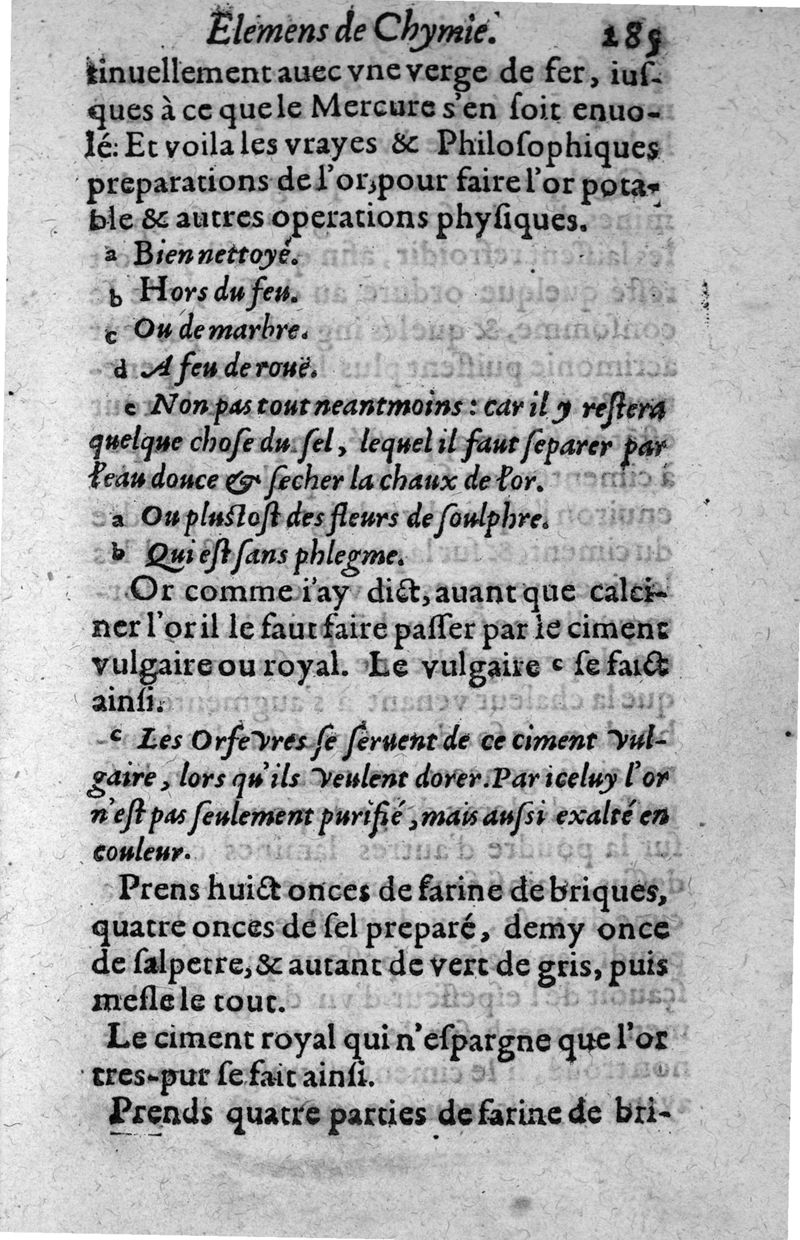 Elemens de Chymie. 185
tinuellement auec vne verge de fer, iuſ-
ques à ce que le Mercure s'en ſoit enuo-
lé: Et voila les vrayes & Philoſophiques
preparations de l'or, pour faire l'or pota-
ble & autres operations phyſiques.
a Bien nettoyé.
b Hors du feu.
c Ou de marbre.
d A feu de rouë.
e Non pas tout neantmoins : car il y reſtera
quelque choſe du ſel, lequel il faut ſeparer par
l'eau douce & ſecher la chaux de l'or.
a Ou pluſtoſt des fleurs de ſoulphre.
b Qui eſt ſans phlegme.
Or comme i'ay dict, auant que calci-
ner l'or il le faut faire paſſer par le ciment
vulgaire ou royal. Le vulgaire c ſe faict
ainſi.
c Les Orfevres ſe ſeruent de ce ciment vul-
gaire, lors qu'ils veulent dorer. Par iceluy l'or
n'eſt pas ſeulement purifié, mais auſsi exalté en
couleur.
Prens huict onces de farine de briques,
quatre onces de ſel preparé, demy once
de ſalpetre, & autant de vert de gris, puis
meſle le tout.
Le ciment royal qui n'eſpargne que l'or
tres-pur ſe fait ainſi.
Prends quatre parties de farine de bri-